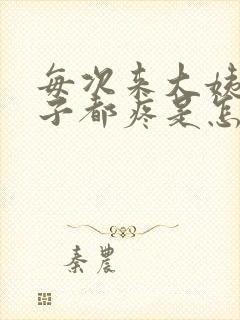 每次来大姨
子都疼是怎
秦农